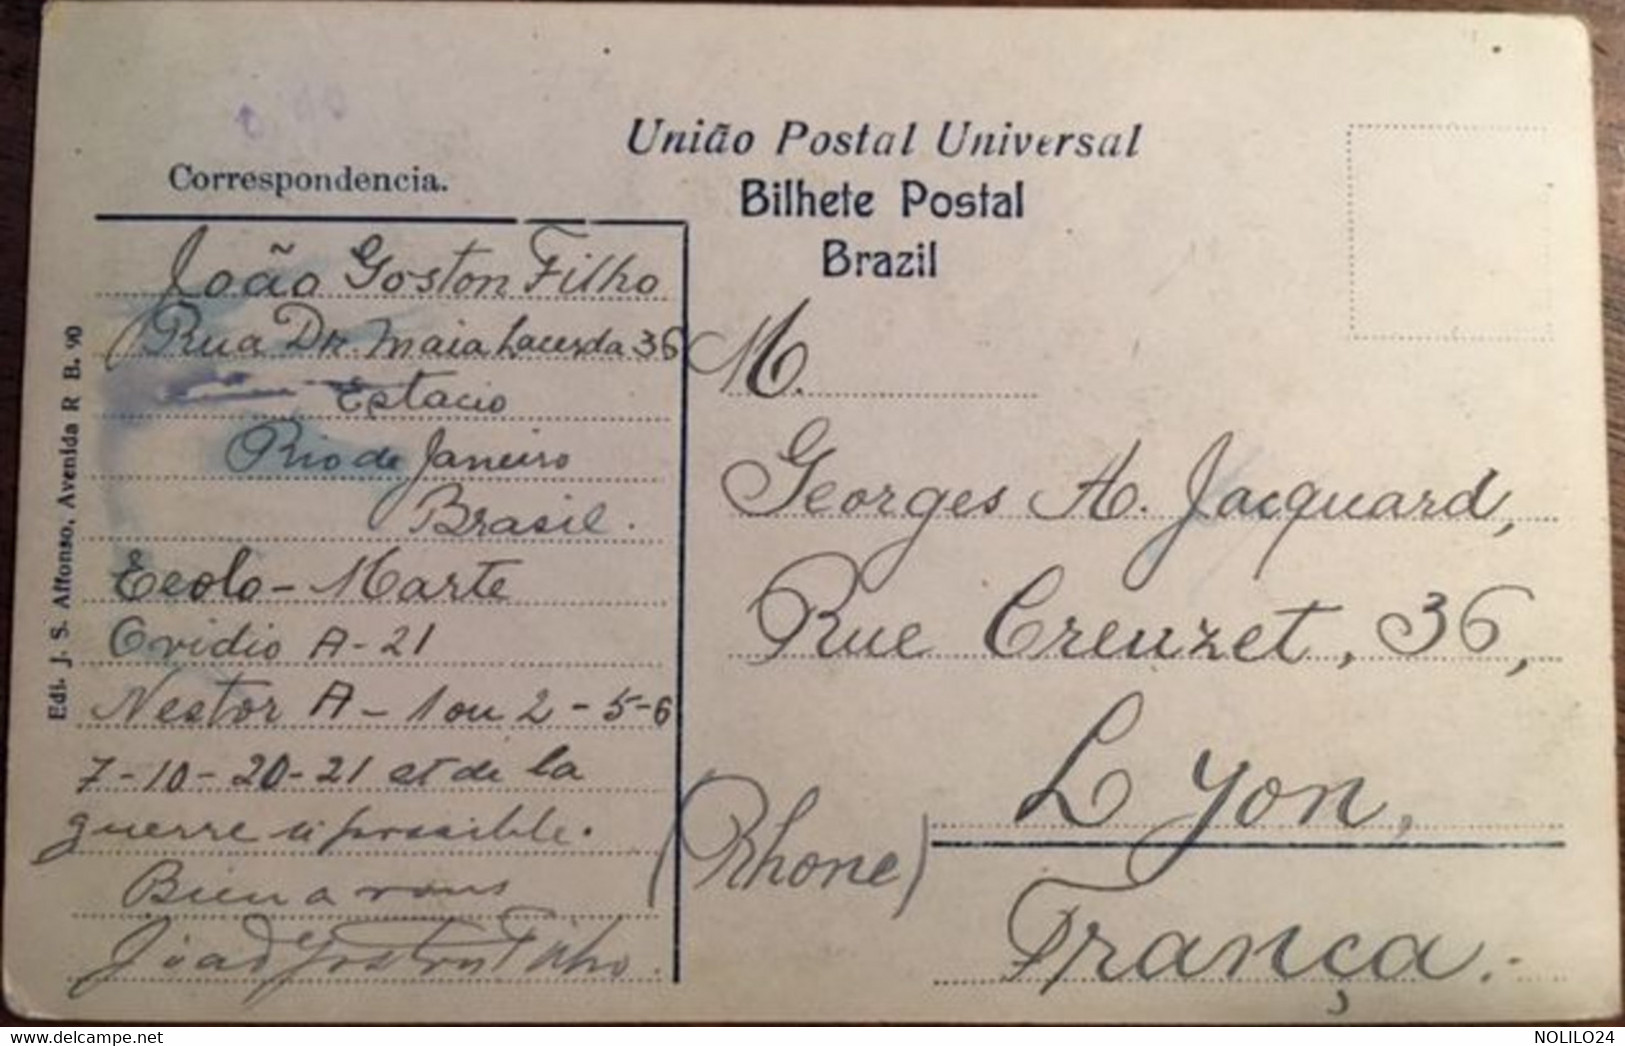 União Postal Universal
Bilhete Postal
Brazil
Correspondencia.
João Goston Filho
Rua Dr. Maia Lacerda 36
Estacio
Rio de Janeiro
Brasil.
Ecolo - Marte
Ovidio A - 21
Nestor A - 1 ou 2 - 5 - 6
7 - 10 - 20 - 21 et de la
guerre si possible.
Bien a vous
João Goston Filho.
Edi. J. S. Affonso. Avenida R B. 90
M.
Georges A. Jacquard,
Rue Creuzet, 36,
Lyon,
(Rhone)
França.-
NOLILO24